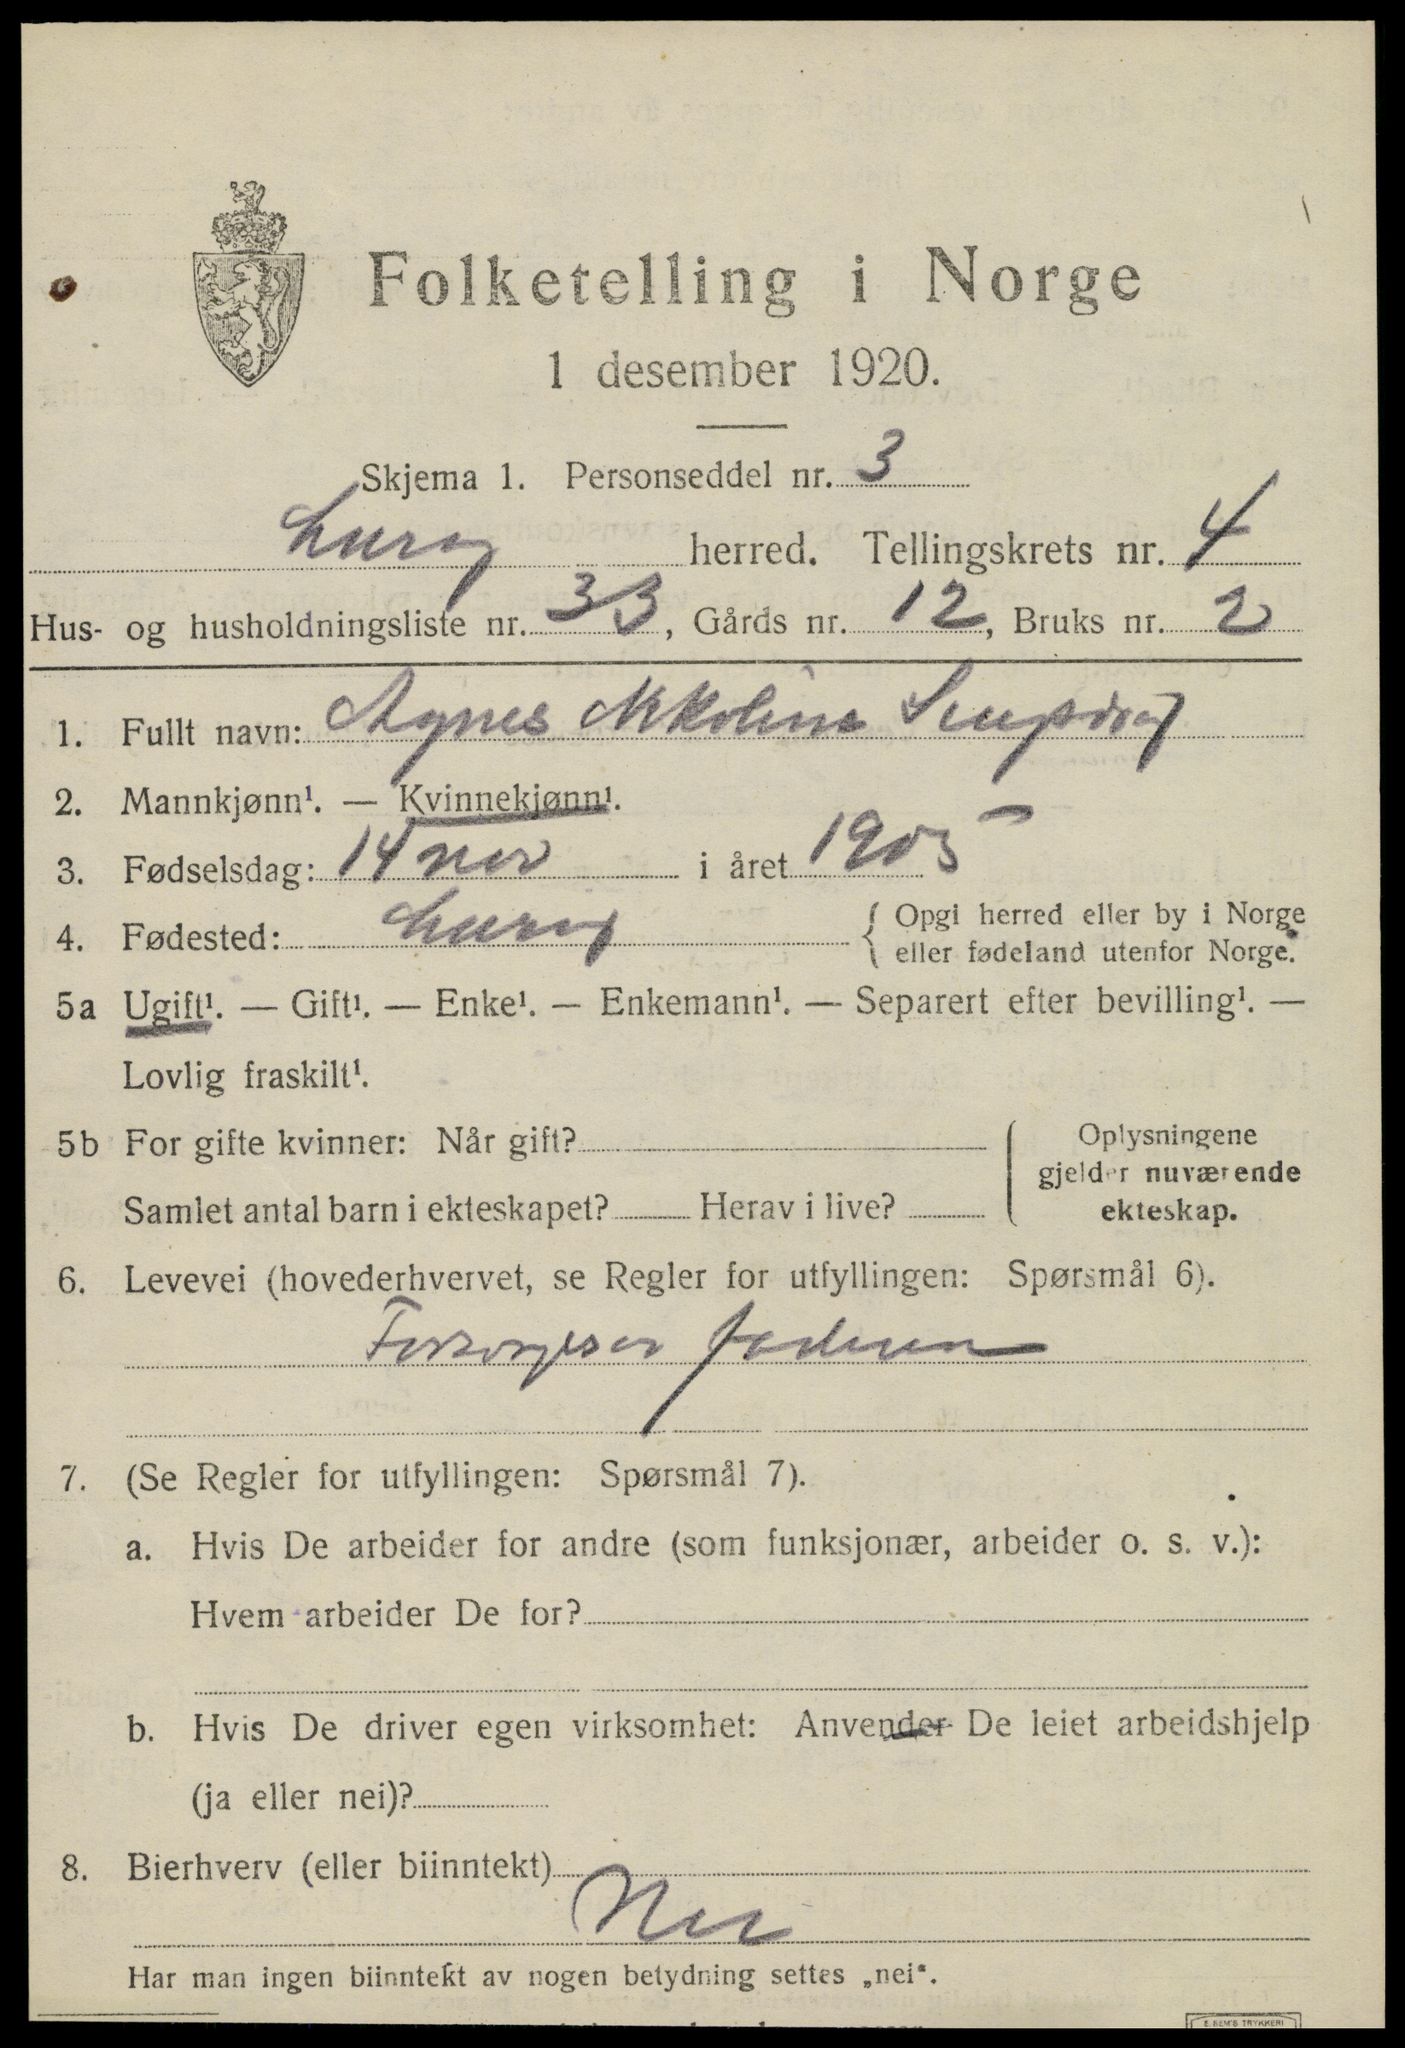 Folketelling i Norge
1 desember 1920.
Skjema 1. Personseddel nr. 3
Lurøy herred. Tellingskrets nr. 4
Hus- og husholdningsliste nr. 33, Gårds nr. 12, Bruks nr. 2
1. Fullt navn: Agnes Nikoline
2. Mannkjønn¹. — Kvinnekjønn¹.
3. Fødselsdag: 14 nov i året 1905
4. Fødested: Lurøy { Opgi herred eller by i Norge
eller fødeland utenfor Norge.
5a Ugift¹. — Gift¹. — Enke¹. — Enkemann¹. — Separert efter bevilling¹. —
Lovlig fraskilt¹.
5b For gifte kvinner: Når gift?
Samlet antal barn i ekteskapet? Herav i live?
Oplysningene
gjelder nuværende
ekteskap.
6. Levevei (hovederhvervet, se Regler for utfyllingen: Spørsmål 6).
Forsørges av faderen
7. (Se Regler for utfyllingen: Spørsmål 7).
a. Hvis De arbeider for andre (som funksjonær, arbeider o. s. v.):
Hvem arbeider De for?
b. Hvis De driver egen virksomhet: Anvender De leiet arbeidshjelp
(ja eller nei)?
8. Bierhverv (eller biinntekt)
Nei
Har man ingen biinntekt av nogen betydning settes „nei“.
E. SEM'S TRYKKERI